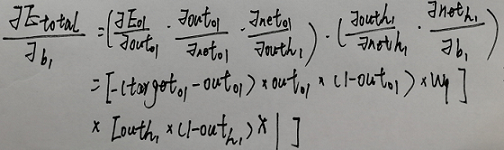 ∂E_total/∂b₁ = (∂E_o1/∂out_o1 · ∂out_o1/∂net_o1 · ∂net_o1/∂out_h₁) · (∂out_h₁/∂net_h₁ · ∂net_h₁/∂b₁)
= [-(target_o1 - out_o1) × out_o1 × (1-out_o1) × w₄]
× [out_h₁ × (1-out_h₁) × 1]